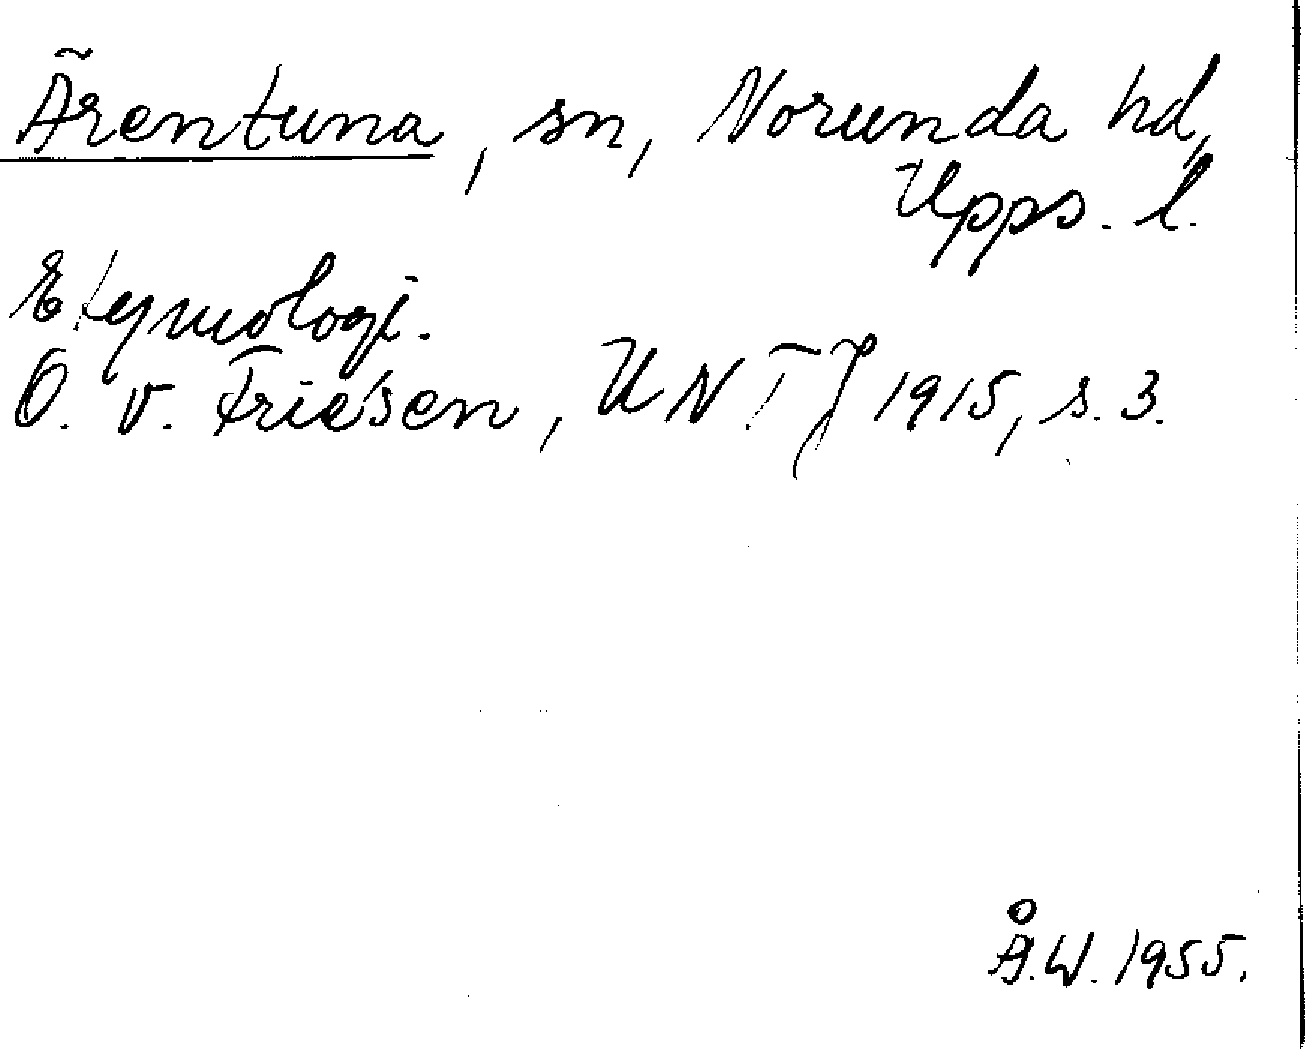 Ärentuna, sn, Norunda hd,
Upps. l.
Etymologi.
O. v. Friesen, UNTJ 1915, s. 3.
Å.W. 1955.